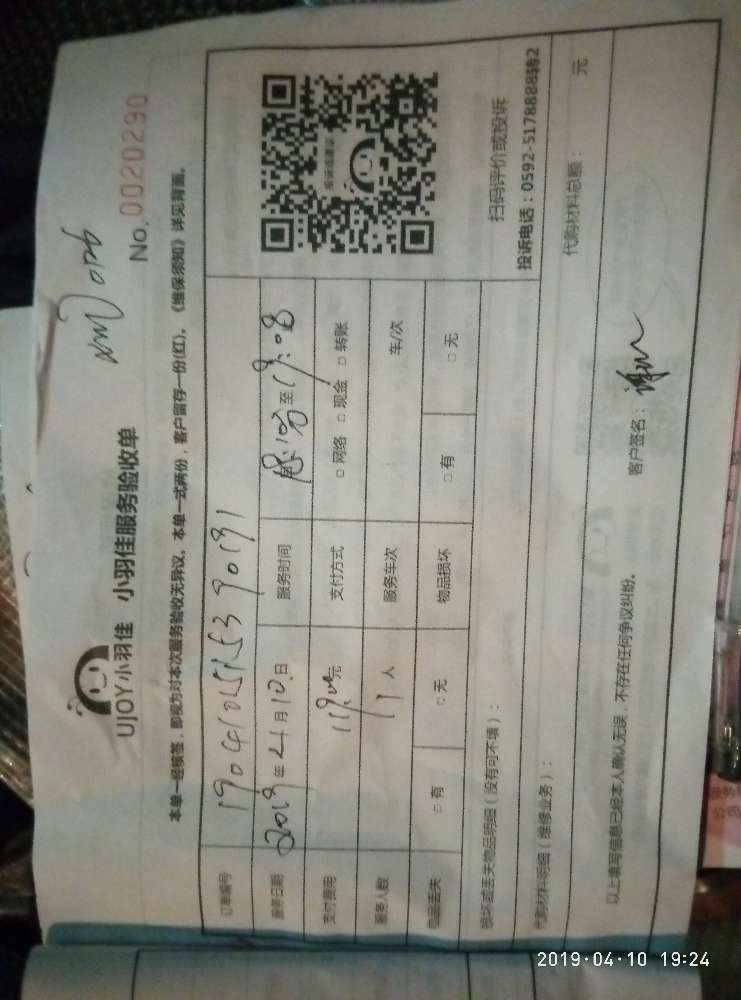 UJOY小羽佳 小羽佳服务验收单
No. 0020290
本单一经核签，即视为对本次服务验收无异议。本单一式两份，客户留存一份(红)。《维保须知》详见背面。
订单编号
服务日期 2019年4月10日 服务时间 至19:08
支付费用 元 支付方式 □ 网络 □ 现金 □ 转账
服务人数 人 服务车次 车/次
物品丢失 □ 有 □ 无 物品损坏 □ 有 □ 无
扫码评价或投诉
投诉电话：0592-5178888转2
损坏或丢失物品明细（没有可不填）：
代购材料明细（维修业务）： 代购材料总额： 元
以上填写信息已经本人确认无误，不存在任何争议纠纷。 客户签名：
2019·04·10 19:24